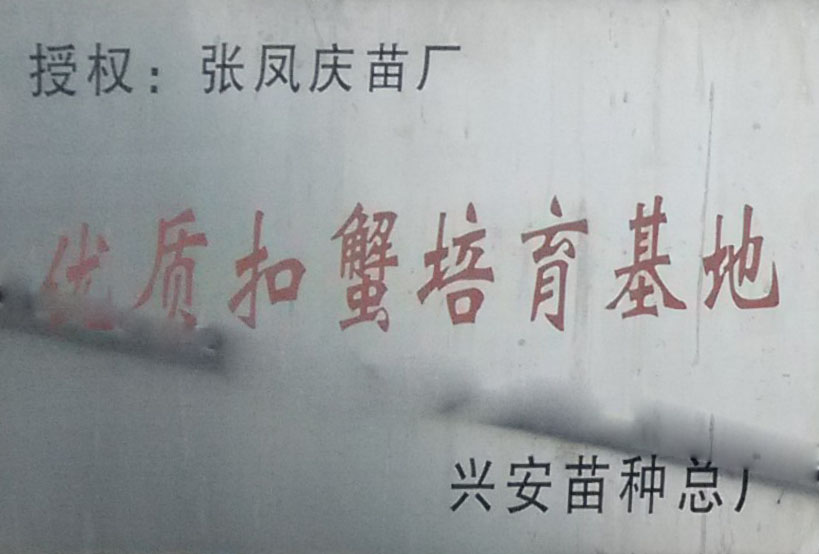 授权：张凤庆苗厂
优质扣蟹培育基地
兴安苗种总厂